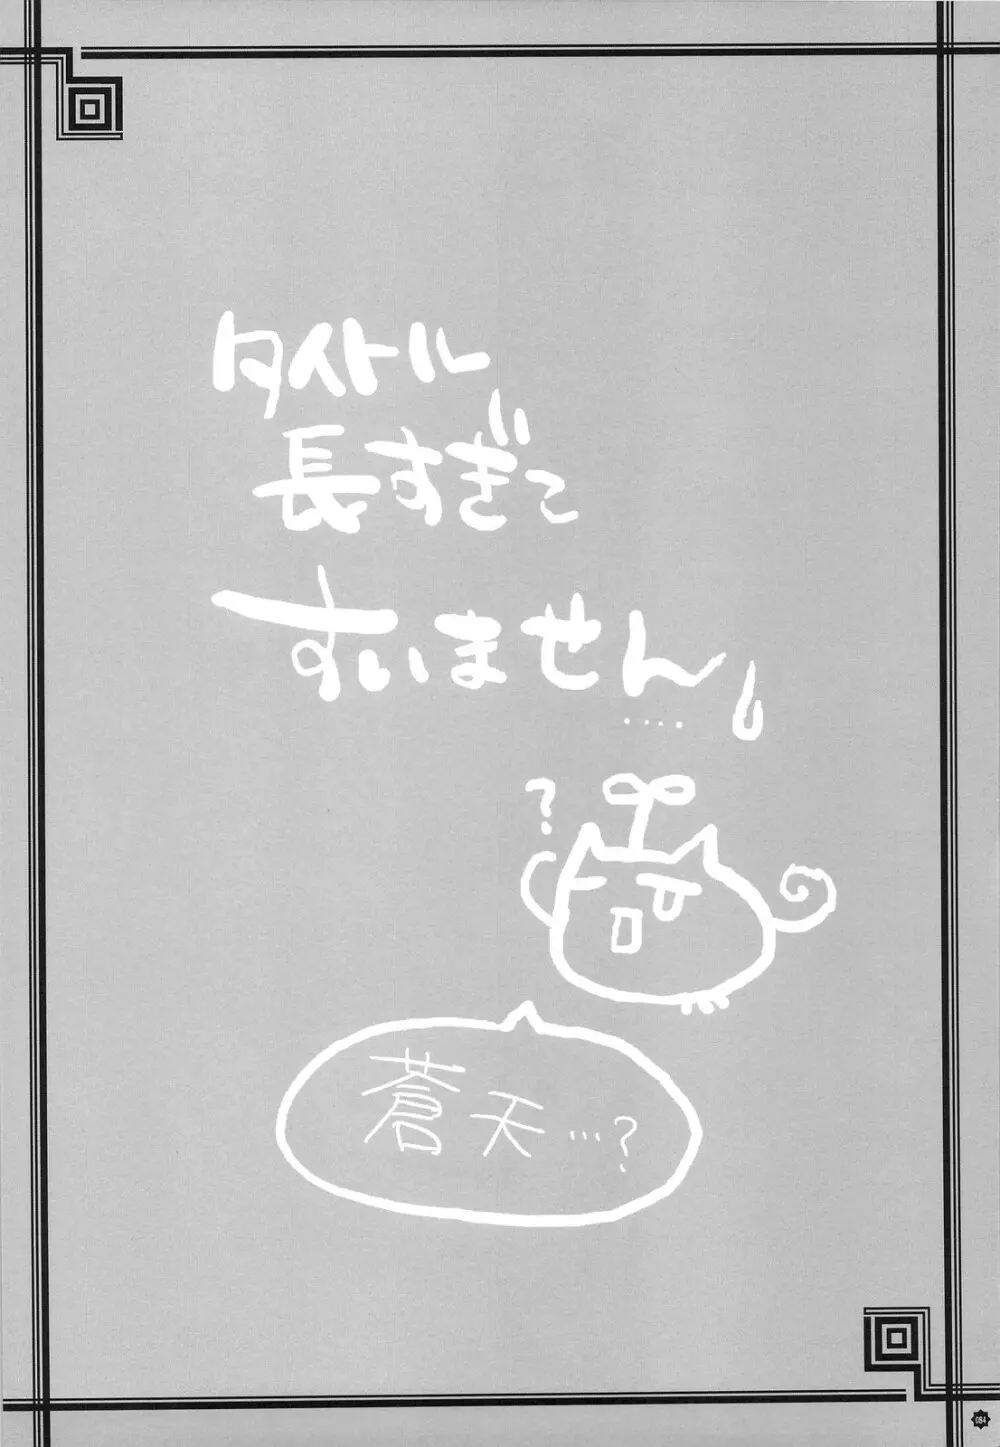 タイトル
長すぎて
すいません
····
?
蒼天…?
084